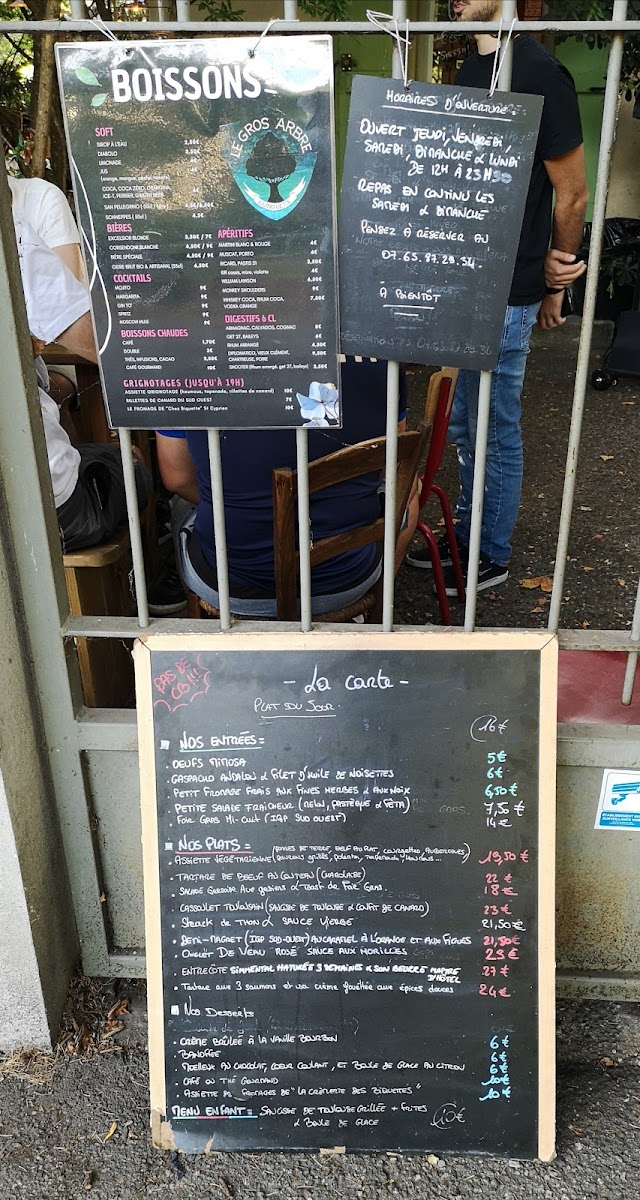 BOISSONS
LE GROS ARBRE
SOFT
SIROP À L'EAU
DIABOLO
LIMONADE 4€
JUS
COCA, COCA ZÉRO, ORANGINA,
SAN PELLEGRINO
SCHWEPPES
BIÈRES
EXCELSIOR BLONDE 3,80€ / 7€
CORSENDONK BLANCHE 4,50€ / 9€
BIÈRE SPÉCIALE 4,50€ / 9€
CIDRE BRUT BIO & ARTISANAL (33cl) 6,50€
COCKTAILS
MOJITO 9€
MARGARITA 9€
GIN TO' 9€
SPRITZ 9€
MOSCOW MULE 9€
BOISSONS CHAUDES
CAFÉ 1,70€
DOUBLE 3€
THÉS, INFUSIONS, CACAO 3,50€
CAFÉ GOURMAND 10€
APÉRITIFS
MARTINI BLANC & ROUGE 4€
MUSCAT, PORTO 4€
RICARD, PASTIS 51
KIR cassis, mûre, violette 4€
WILLIAM LAWSON
MONKEY SHOULDERS 9€
WHISKEY COCA, RHUM COCA, 7,50€
VODKA ORANGE
DIGESTIFS 6 CL
ARMAGNAC, CALVADOS, COGNAC 8€
GET 27, BAILEYS 4€
RHUM ARRANGÉ 4,50€
DIPLOMATICO, VIEUX CLÉMENT, 9,50€
CHARTREUSE, POIRE
SHOOTER (Rhum arrangé, get 27, baileys) 3,50€
GRIGNOTAGES (JUSQU'À 19H)
ASSIETTE GRIGNOTAGE (houmous, tapenade, rillettes de canard) 10€
RILLETTES DE CANARD DU SUD OUEST 7€
LE FROMAGE DE "Chez Biquette" St Cyprien 10€
HORAIRES D'OUVERTURE:
OUVERT JEUDI, VENDREDI,
SAMEDI, DIMANCHE & LUNDI
DE 12H À 23H30
REPAS EN CONTINU LES
SAMEDI & DIMANCHE
PENSEZ À RÉSERVER AU
07.65.87.29.34.
À BIENTÔT
PAS DE CB!!!
- La carte -
PLAT DU JOUR 16€
NOS ENTRÉES =
. OEUFS MIMOSA 5€
. GASPACHO ANDALOU & FILET D'HUILE DE NOISETTES 6€
. PETIT FROMAGE FRAIS AUX FINES HERBES & AUX NOIX 6,50€
. PETITE SALADE FRAÎCHEUR (MELON, PASTÈQUE & FÊTA) 7,50€
. FOIE GRAS MI-CUIT (IGP SUD OUEST) 14€
NOS PLATS =
. ASSIETTE VÉGÉTARIENNE (POMMES DE TERRE, OEUF AU PLAT, COURGETTES, AUBERGINES, POIVRONS grillés, polenta, tapenade, houmous... 19,50€
. TARTARE DE BOEUF AU COUTEAU (CHAROLAISE) 22€
. SALADE GERSOISE Aux gésiers & Toast de Foie Gras. 18€
. CASSOULET TOULOUSAIN (SAUCISSE DE TOULOUSE & CONFIT DE CANARD) 23€
. Steack de THON & SAUCE VIERGE 21,50€
. DEMI-MAGRET (IGP SUD-OUEST) AU CARAMEL À L'ORANGE ET AUX FIGUES 21,50€
. ONGLET DE VEAU ROSÉ SAUCE AUX MORILLES 25€
. ENTRECÔTE SIMMENTAL MATURÉE 3 SEMAINES & SON BEURRE MAÎTRE D'HÔTEL 27€
. Tartare aux 3 saumons et sa crème fouettée aux épices douces 24€
Nos Desserts
. CRÈME BRÛLÉE À LA VANILLE BOURBON 6€
. BANOFFEE 6€
. MOELLEUX AU CHOCOLAT, COEUR COULANT, ET BOULE DE GLACE AU CITRON 6€
. CAFÉ OU THÉ GOURMAND 10€
. ASSIETTE DE FROMAGES DE "LA CRÈMERIE DES BIQUETTES" 10€
MENU ENFANT = SAUCISSE DE TOULOUSE GRILLÉE + FRITES 10€
& BOULE DE GLACE